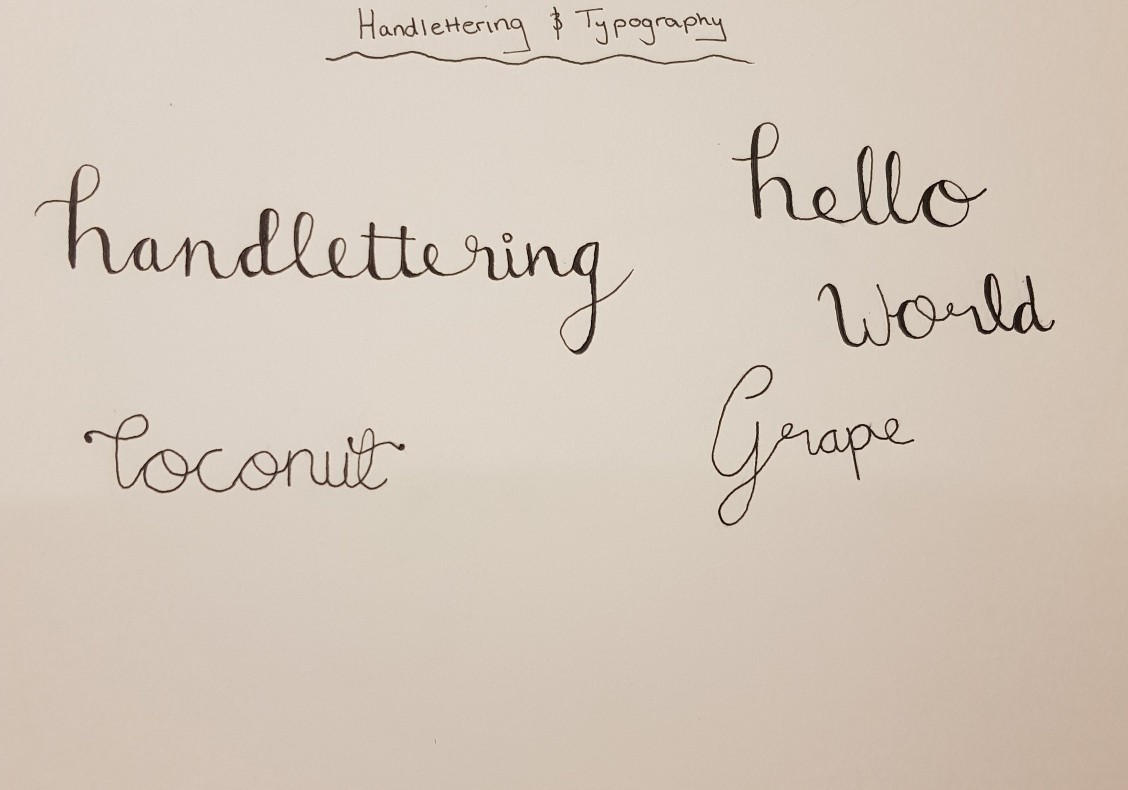 Handlettering & Typography
handlettering
hello
World
Coconut
Grape